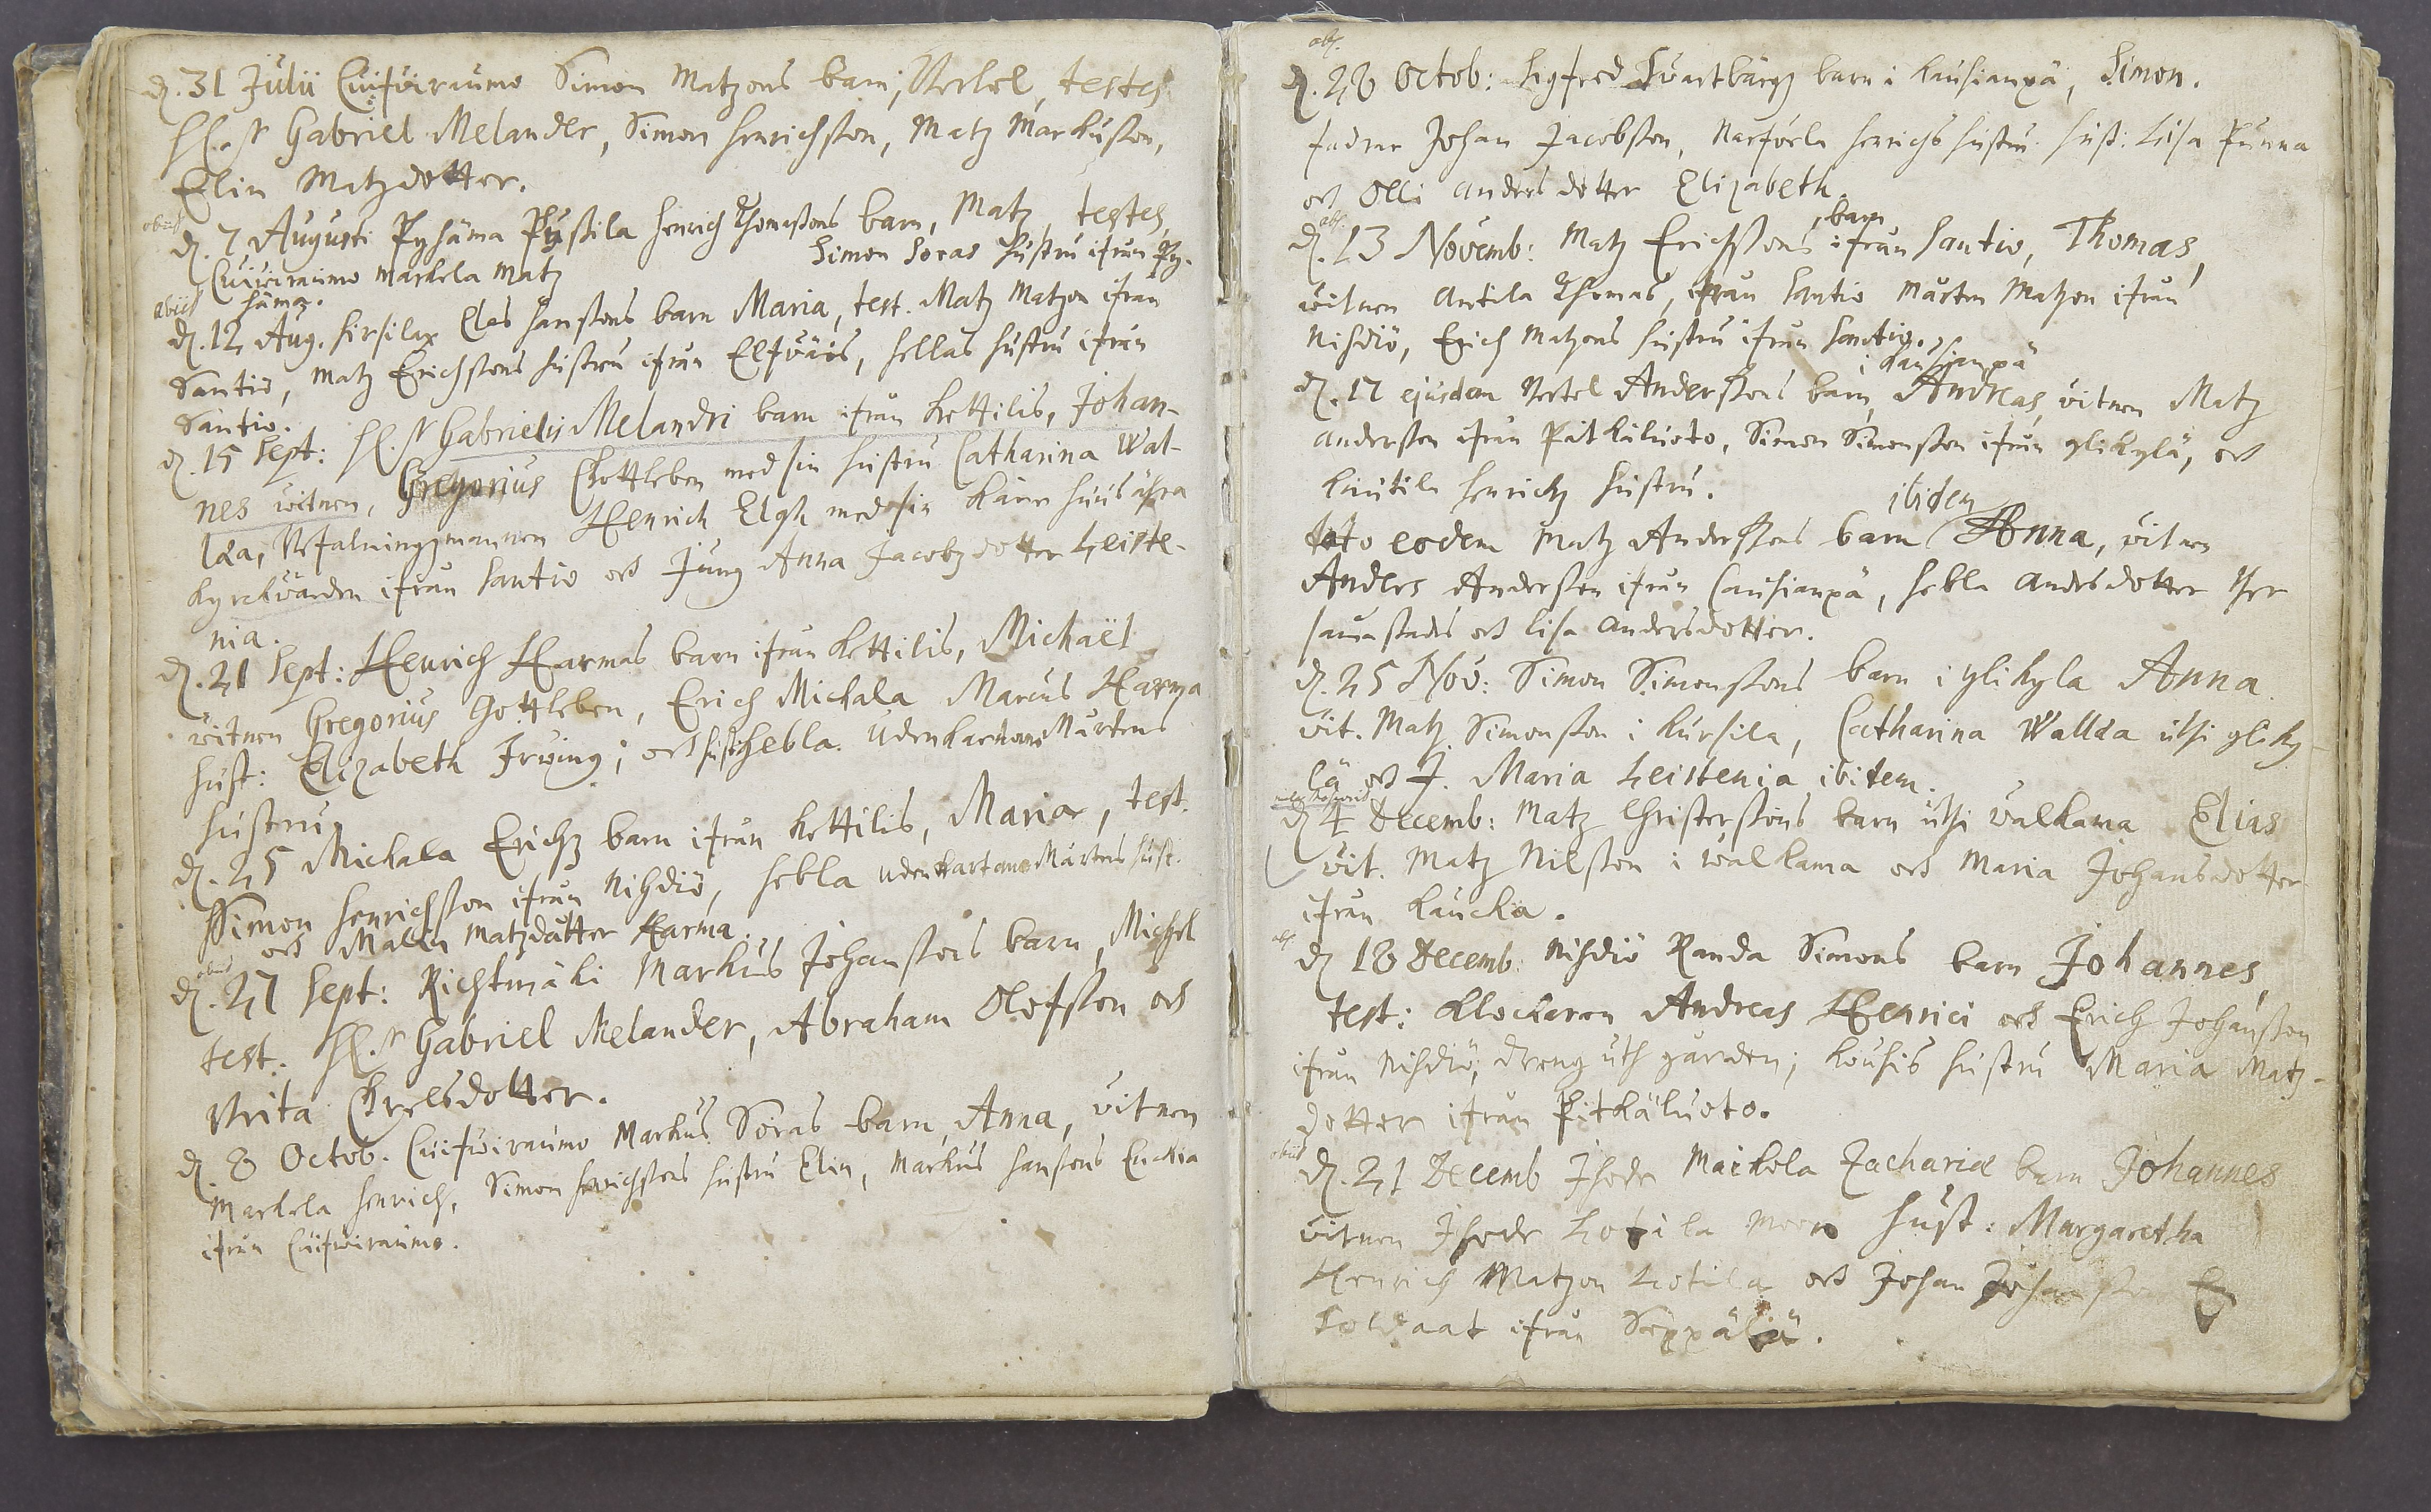 d. 31 Julii Cuifwiraumo Simon Matzons barn, Bertel, testes
H. Gabriel Melander, Simon Henrichsson, Matz Markusson,
Elin Matzdotter.
obiit
d. 7 Augusti Pyhäma Pyssila Henrich Thomassons barn, Matz, testes,
Cuiwiraumo Markela Matz Simon Soras hustru ifrån Py-
häma.
obiit
d. 12 Aug. Hirsilax Clas Hanssons barn Maria, test. Matz Matzon ifrån
Santio, Matz Erichssons hustru ifrån Elfwäis, Hellas hustru ifrån
Santio.
d. 15 Sept: H. Gabrielis Melandri barn ifrån Kettilis, Johan-
nes witnen, Gregorius Gottleben med sin hustru Catharina Wal-
lda, Befalningzmannen Henrich Elgh med sin käre huus ähra
kyrckwärden ifrån Santio och Jung Anna Jacobzdotter Leiste-
nia.
d. 21 Sept: Henrich Harmas barn ifrån Kettilis, Michaël
witnen Gregorius Gottleben, Erich Mickala Marcus Harma
hust: Elizabeth Irwing; och hust Hebla Udenkartano Mårtens
hustru.
d. 25 Mickala Erichz barn ifrån Kettilis, Maria, test.
Simon Henrichsson ifrån Nihdiö, Hebla Udenkartano Mårtens hust.
och Malin Matzdåtter Harma.
obiit
d. 27 Sept: Richtmäki Markus Johanssons barn, Michel
test. H. Gabriel Melander, Abraham Olofsson och
Brita Chrelsdotter.
d. 8 Octob. Cuifwiraumo Markus Soras barn, Anna, witnen
Markela Henrich, Simon Henrichssons hustru Elin, Markus Hanssons Enckia
ifrån Cuifwiraumo.
ob.
d. 28 Octob: Sigfred Swartbärgz barn i Kausianpä, Simon.
fadrar Johan Jacobsson, Narfwela Henrichs hustru hust: Lisa Punna
och Olli Andersdotter Elizabeth.
ob.
d. 13 Novemb: Matz Erichssons barn ifrån Santio, Thomas,
witnen Antila Thomas, ifrån Santio Mårten Matzon ifrån
Nihdiö, Erich Matzons hustru ifrån Santio.
i Kausianpä
d. 17 ejusdem Bertel Anderssons barn, Andreas, witnen Matz
Andersson ifrån Pitkäluoto, Simon Simonsson ifrån ylikylä, och
Knutila Henrichz hustru.
ibidem
toto eodem Matz Anderssons barn Anna, witnen
Anders Andersson ifrån Causianpä, Hebla Andersdotter ther
sammastädes och Lisa Andersdotter.
d. 25 Nov: Simon Simonssons barn i ylikyla Anna
wit. Matz Simonsson i Kursila, Catharina Wallda uthi yliky-
lä och J. Maria Leistenia ibidem.
d 4 Decemb: Matz Christerssons barn uthi Walkama Elias
wit. Matz Nilsson i Walkama och Maria Johansdotter
ifrån Kaucka.
ob.
d 18 Decemb: Nihdiö Randa Simons barn Johannes,
test: Klockaren Andreas Henrici och Erich Johansson
ifrån Nihdiö, dreng uth gården; Kouhis hustru Maria Matz-
dotter ifrån Pitkäluoto.
obiit
d. 21 Decemb Ihode Markola Zachariæ barn Johannes
witnen Ihode Hotila hust: Margaretha
Henrich Matzon Hotila och Johan Johansson En
Soldaat ifrån Seppälä.